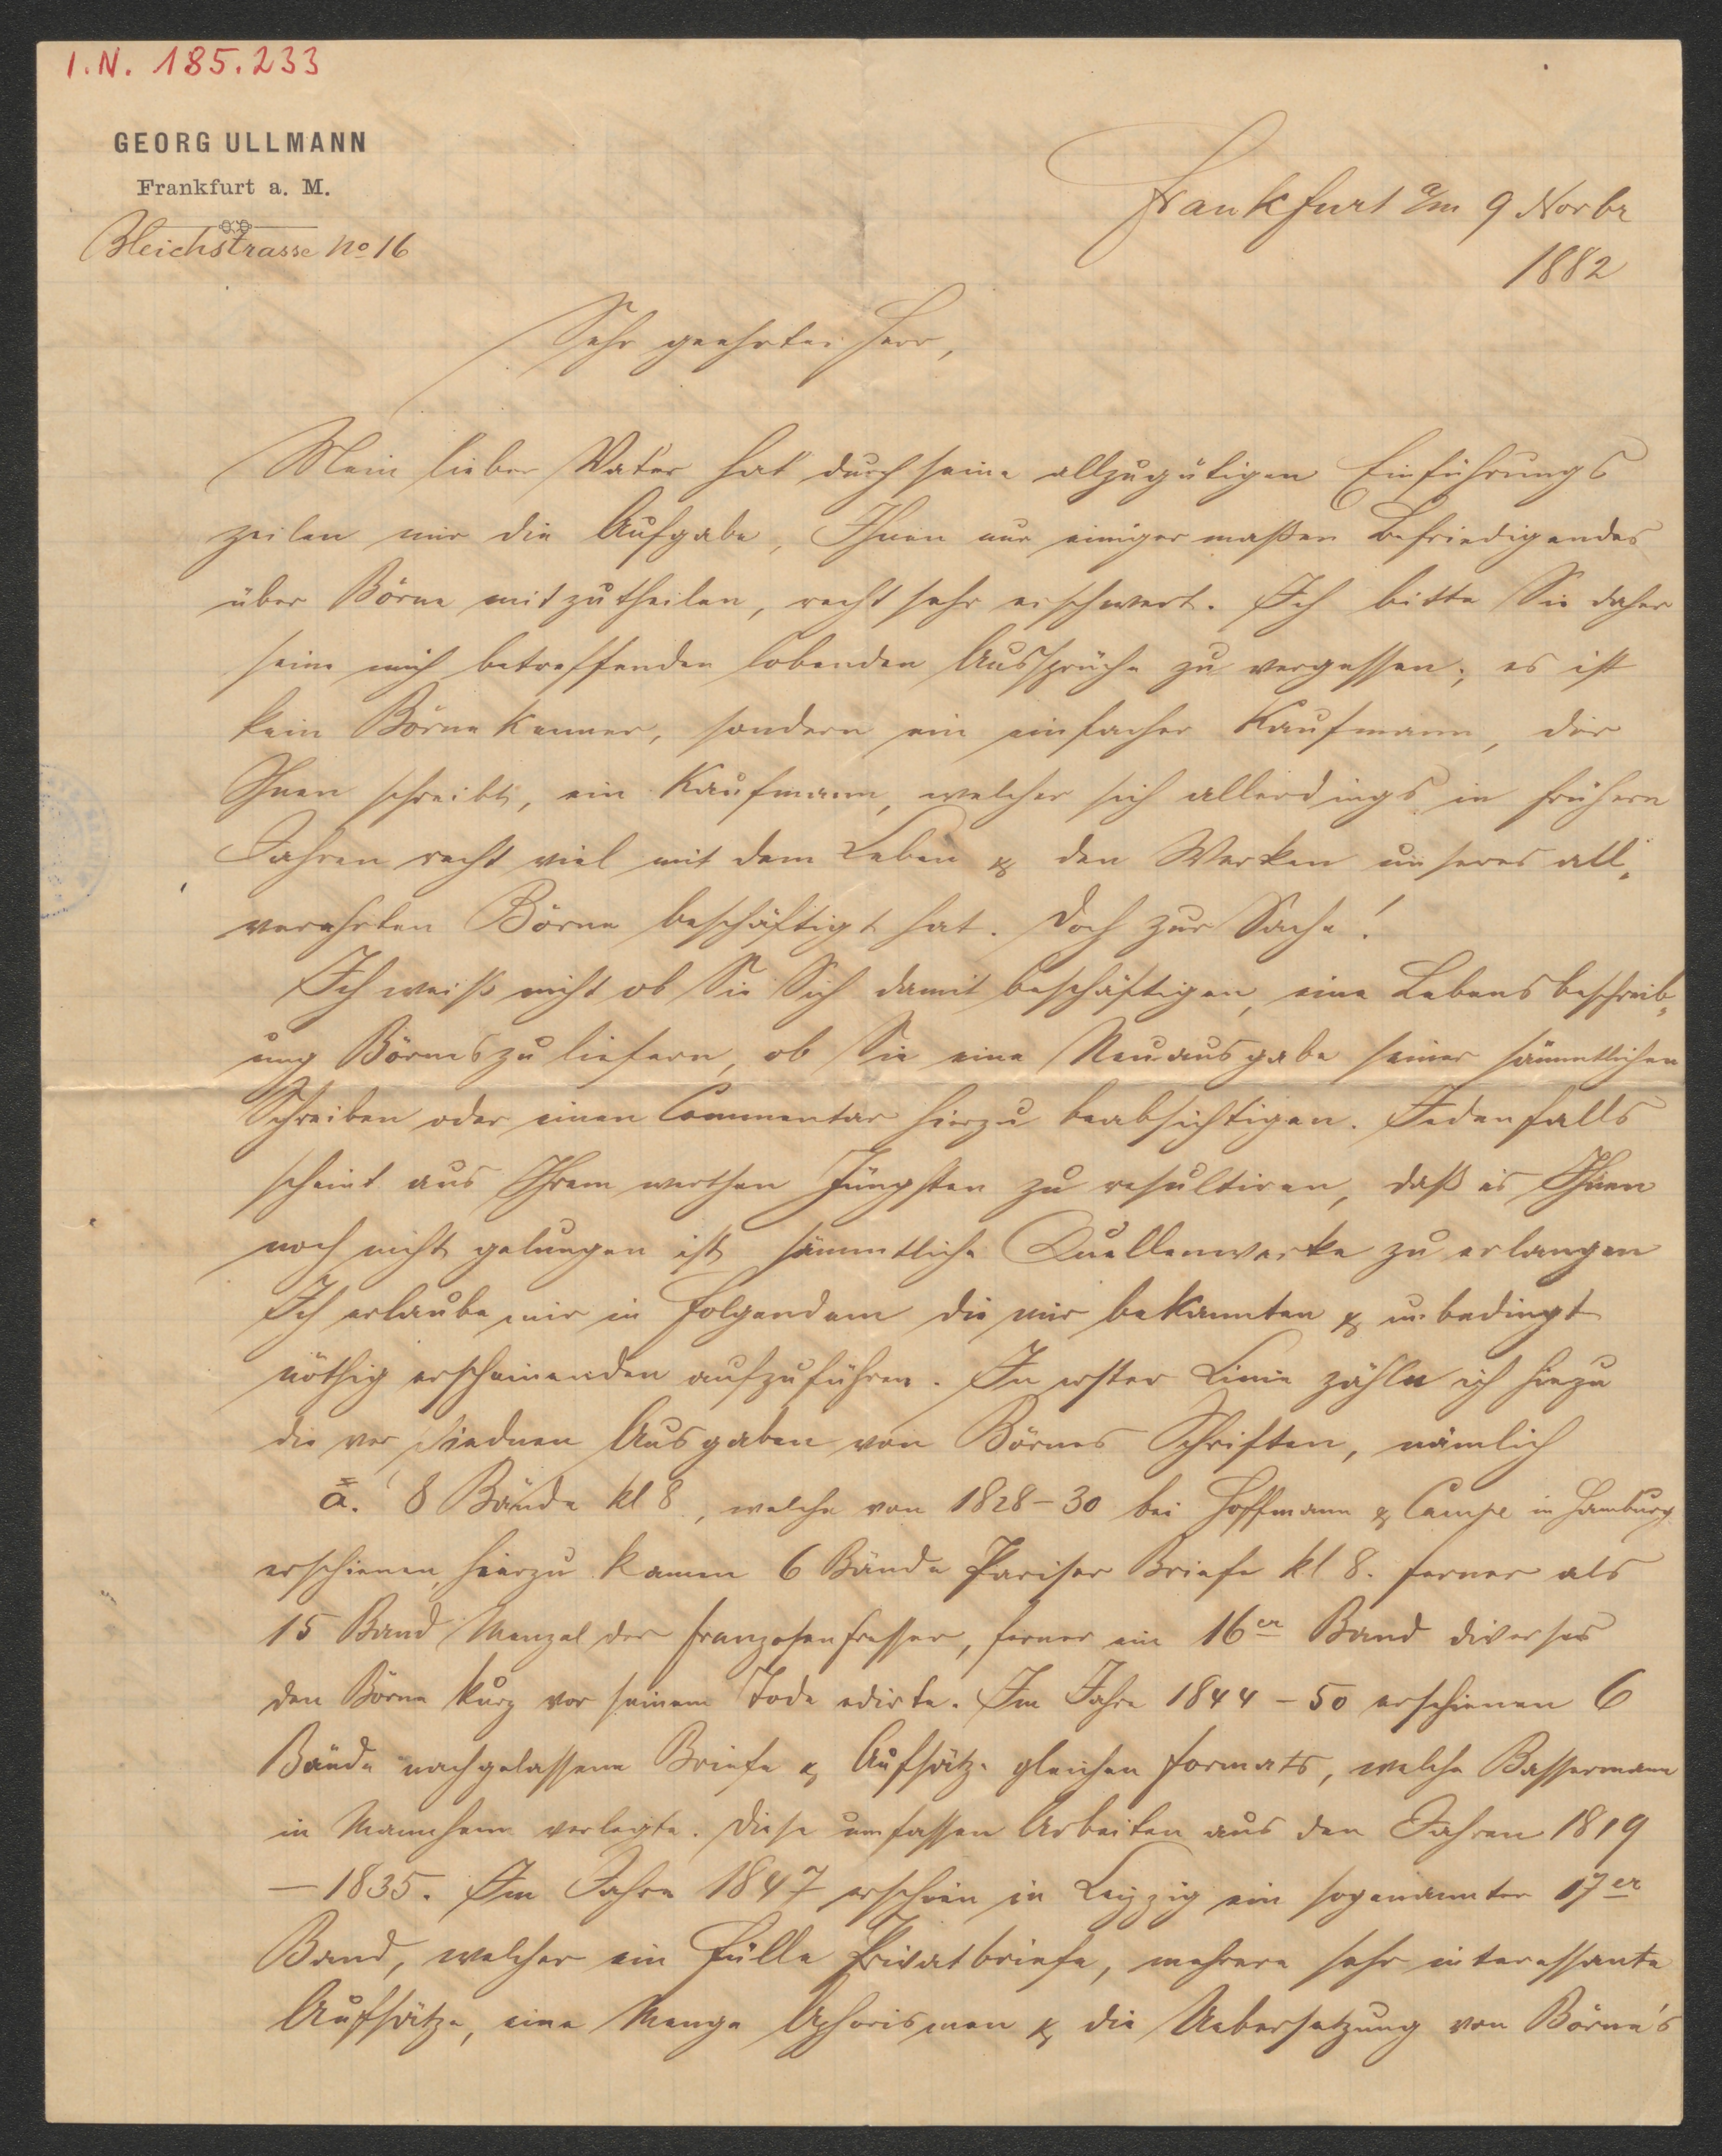 I.N. 185.233
GEORG ULLMANN
Frankfurt a. M.
Bleichstrasse No 16
Frankfurt a/m 9 Novbr
1882
Sehr geehrter Herr,
Mein lieber Vater hat durch seine allzugütigen Einführungs
zeilen mir die Aufgabe, Ihnen nur einigermaßen Befriedigendes
über Börne mitzutheilen, recht sehr erschwert. Ich bitte Sie daher
seine mich betreffenden lobenden Aussprüche zu vergessen; es ist
kein Börne Kenner, sondern ein einfacher Kaufmann, der
Ihnen schreibt, ein Kaufmann, welcher sich allerdings in frühern
Jahren recht viel mit dem Leben & den Werken unseres all„
verehrten Börne beschäftigt hat. Doch zur Sache!
Ich weiß nicht ob Sie Sich damit beschäftigen, eine Lebensbeschreib„
ung Börnes zu liefern, ob Sie eine Neuausgabe seiner sämmtlichen
Schreiben oder einen Commentar hierzu beabsichtigen. Jedenfalls
scheint aus Ihrem werthen Jüngsten zu resultiren, daß es Ihnen
noch nicht gelungen ist sämmtliche Quellenwerke zu erlangen
Ich erlaube mir in Folgendem die mir bekannten & unbedingt
nöthig erscheinenden aufzuführen. In erster Linie zähle ich hiezu
die verschiednen Ausgaben von Börnes Schriften, nämlich
a. 8 Bände kl 8, welche von 1828-30 bei Hoffmann & Campe in Hamburg
erschienen, hierzu kamen 6 Bände Pariser Briefe kl 8. ferner als
15 Band Menzel der Franzosenfresser, ferner ein 16er Band diverses
den Börne kurz vor seinem Tode edirte. Im Jahre 1844-50 erschienen 6
Bände nachgelassene Briefe & Aufsätze gleichen Formats, welche Bassermann
in Mannheim verlegte. Diese umfassen Arbeiten aus den Jahren 1819
– 1835. Im Jahre 1847 erschien in Leipzig ein sogenannter 17er
Band, welcher ein Fülle Privatbriefe, mehrere sehr interessante
Aufsätze, eine Menge Aphorismen & die Uebersetzung von Börne's